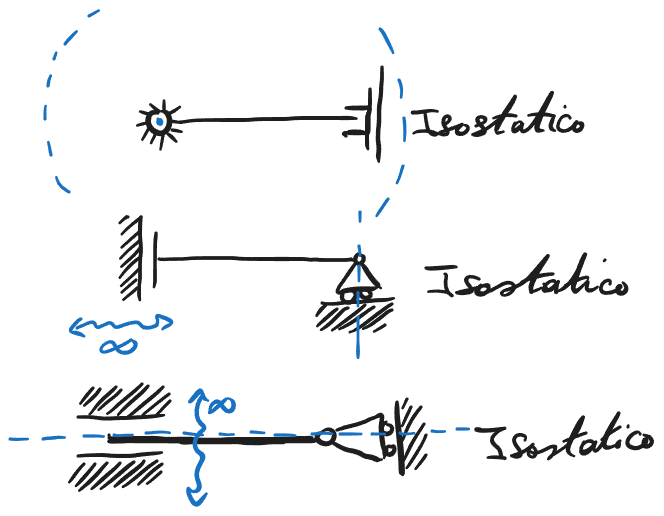 Isostatico
Isostatico
∞
∞
Isostatico